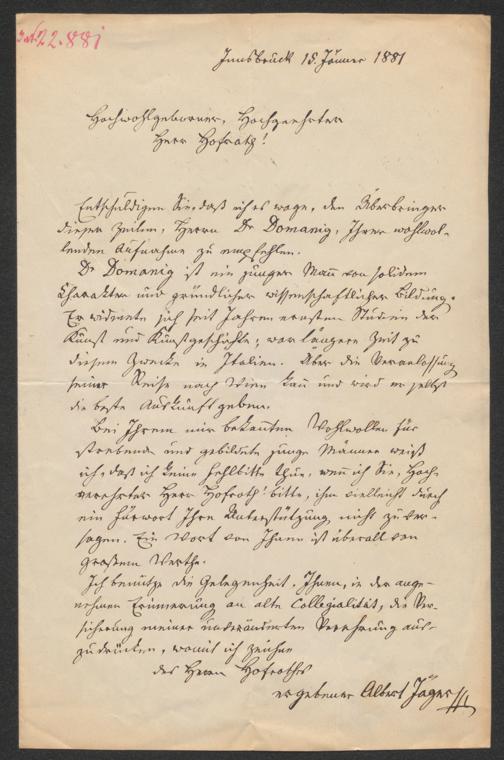 22.881
Innsbruck 15. Jänner 1881
Hochwohlgeborner, Hochgeehrter
Herr Hofrath!
Entschuldigen Sie, daß ich es wage, den Überbringer
dieser Zeilen, Herrn Dr Domanig, Ihrer wohlwol-
lenden Aufnahme zu empfehlen.
Dr Domanig ist ein junger Mann von solidem
Charakter und gründlicher wissenschaftlicher Bildung.
Er widmete sich seit Jahren ernsten Studien der
Kunst und Kunstgeschichte, war längere Zeit zu
diesem Zwecke in Italien. Über die Veranlassung
seiner Reise nach Wien kann und wird er selbst
die beste Auskunft geben.
Bei Ihrem mir bekannten Wohlwollen für
strebende und gebildete junge Männer weiß
ich, daß ich keine Fehlbitte thue, wenn ich Sie, Hoch-
verehrter Herr Hofrath! bitte, ihm vielleicht durch
ein Fürwort Ihre Unterstützung nicht zu ver-
sagen. Ein Wort von Ihnen ist überall von
großem Werthe.
Ich benütze die Gelegenheit, Ihnen, in der ange-
nehmen Erinnerung an alte Collegialität, die Ver-
sicherung meiner unveränderten Verehrung aus-
zudrücken, womit ich zeichne
des Herrn Hofrathes
ergebener Albert Jäger